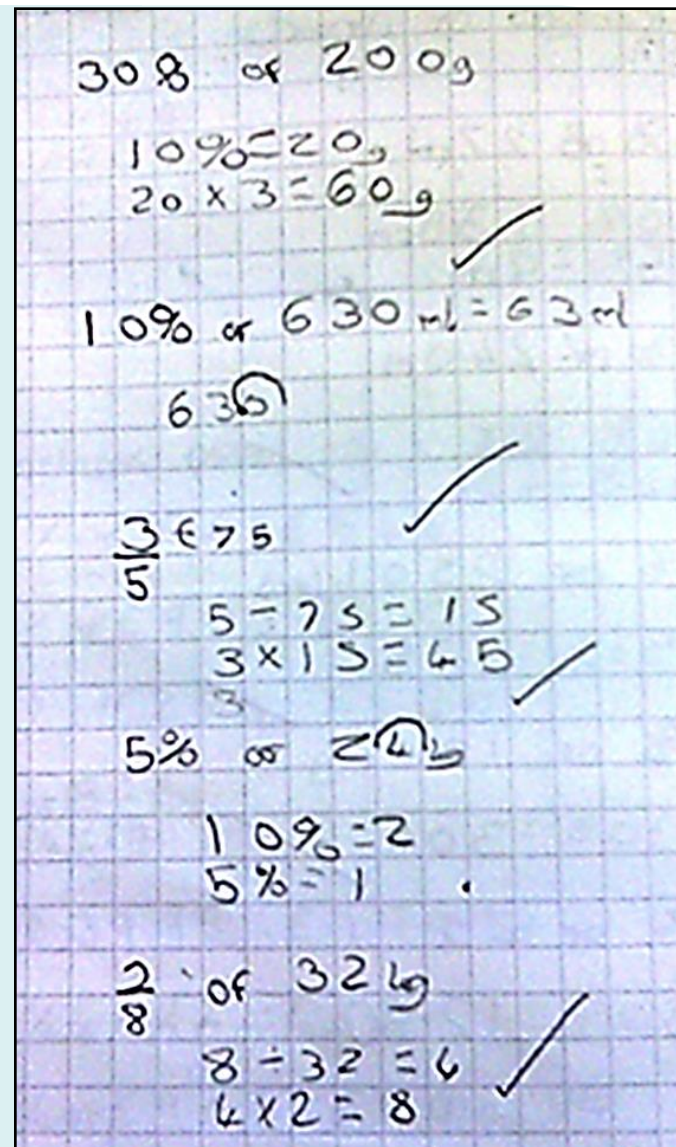 30% of 200g
10%=20g
20 × 3 = 60g
10% of 630 ml = 63 ml
630
3/5 of 75
5 ÷ 75 = 15
3 × 15 = 45
5% of 24kg
10% = 2
5% = 1
2/8 of 32kg
8 ÷ 32 = 4
4 × 2 = 8